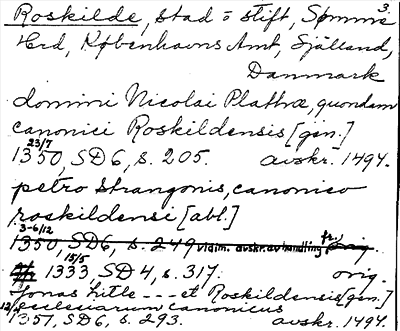 3.
Roskilde, stad o stift, Sømme
Hrd, Københavns Amt, Själland,
Danmark
domini Nicolai Plathæ, quondam
canonici Roskildensis [gen.]
23/7
1350, SD6, s. 205. avskr. 1494.
petro Strangonis, canonico
roskildensi [abl.]
3-6/12
1350 SD6, s. 249 vidim. avskr. av handling fr. orig.
15/5
1333, SD4, s. 317. orig.
Jonas Litle --- et Roskildensis [gen.]
ecclesiarum canonicus
12/1
1351, SD6, s. 293. avskr. 1494.